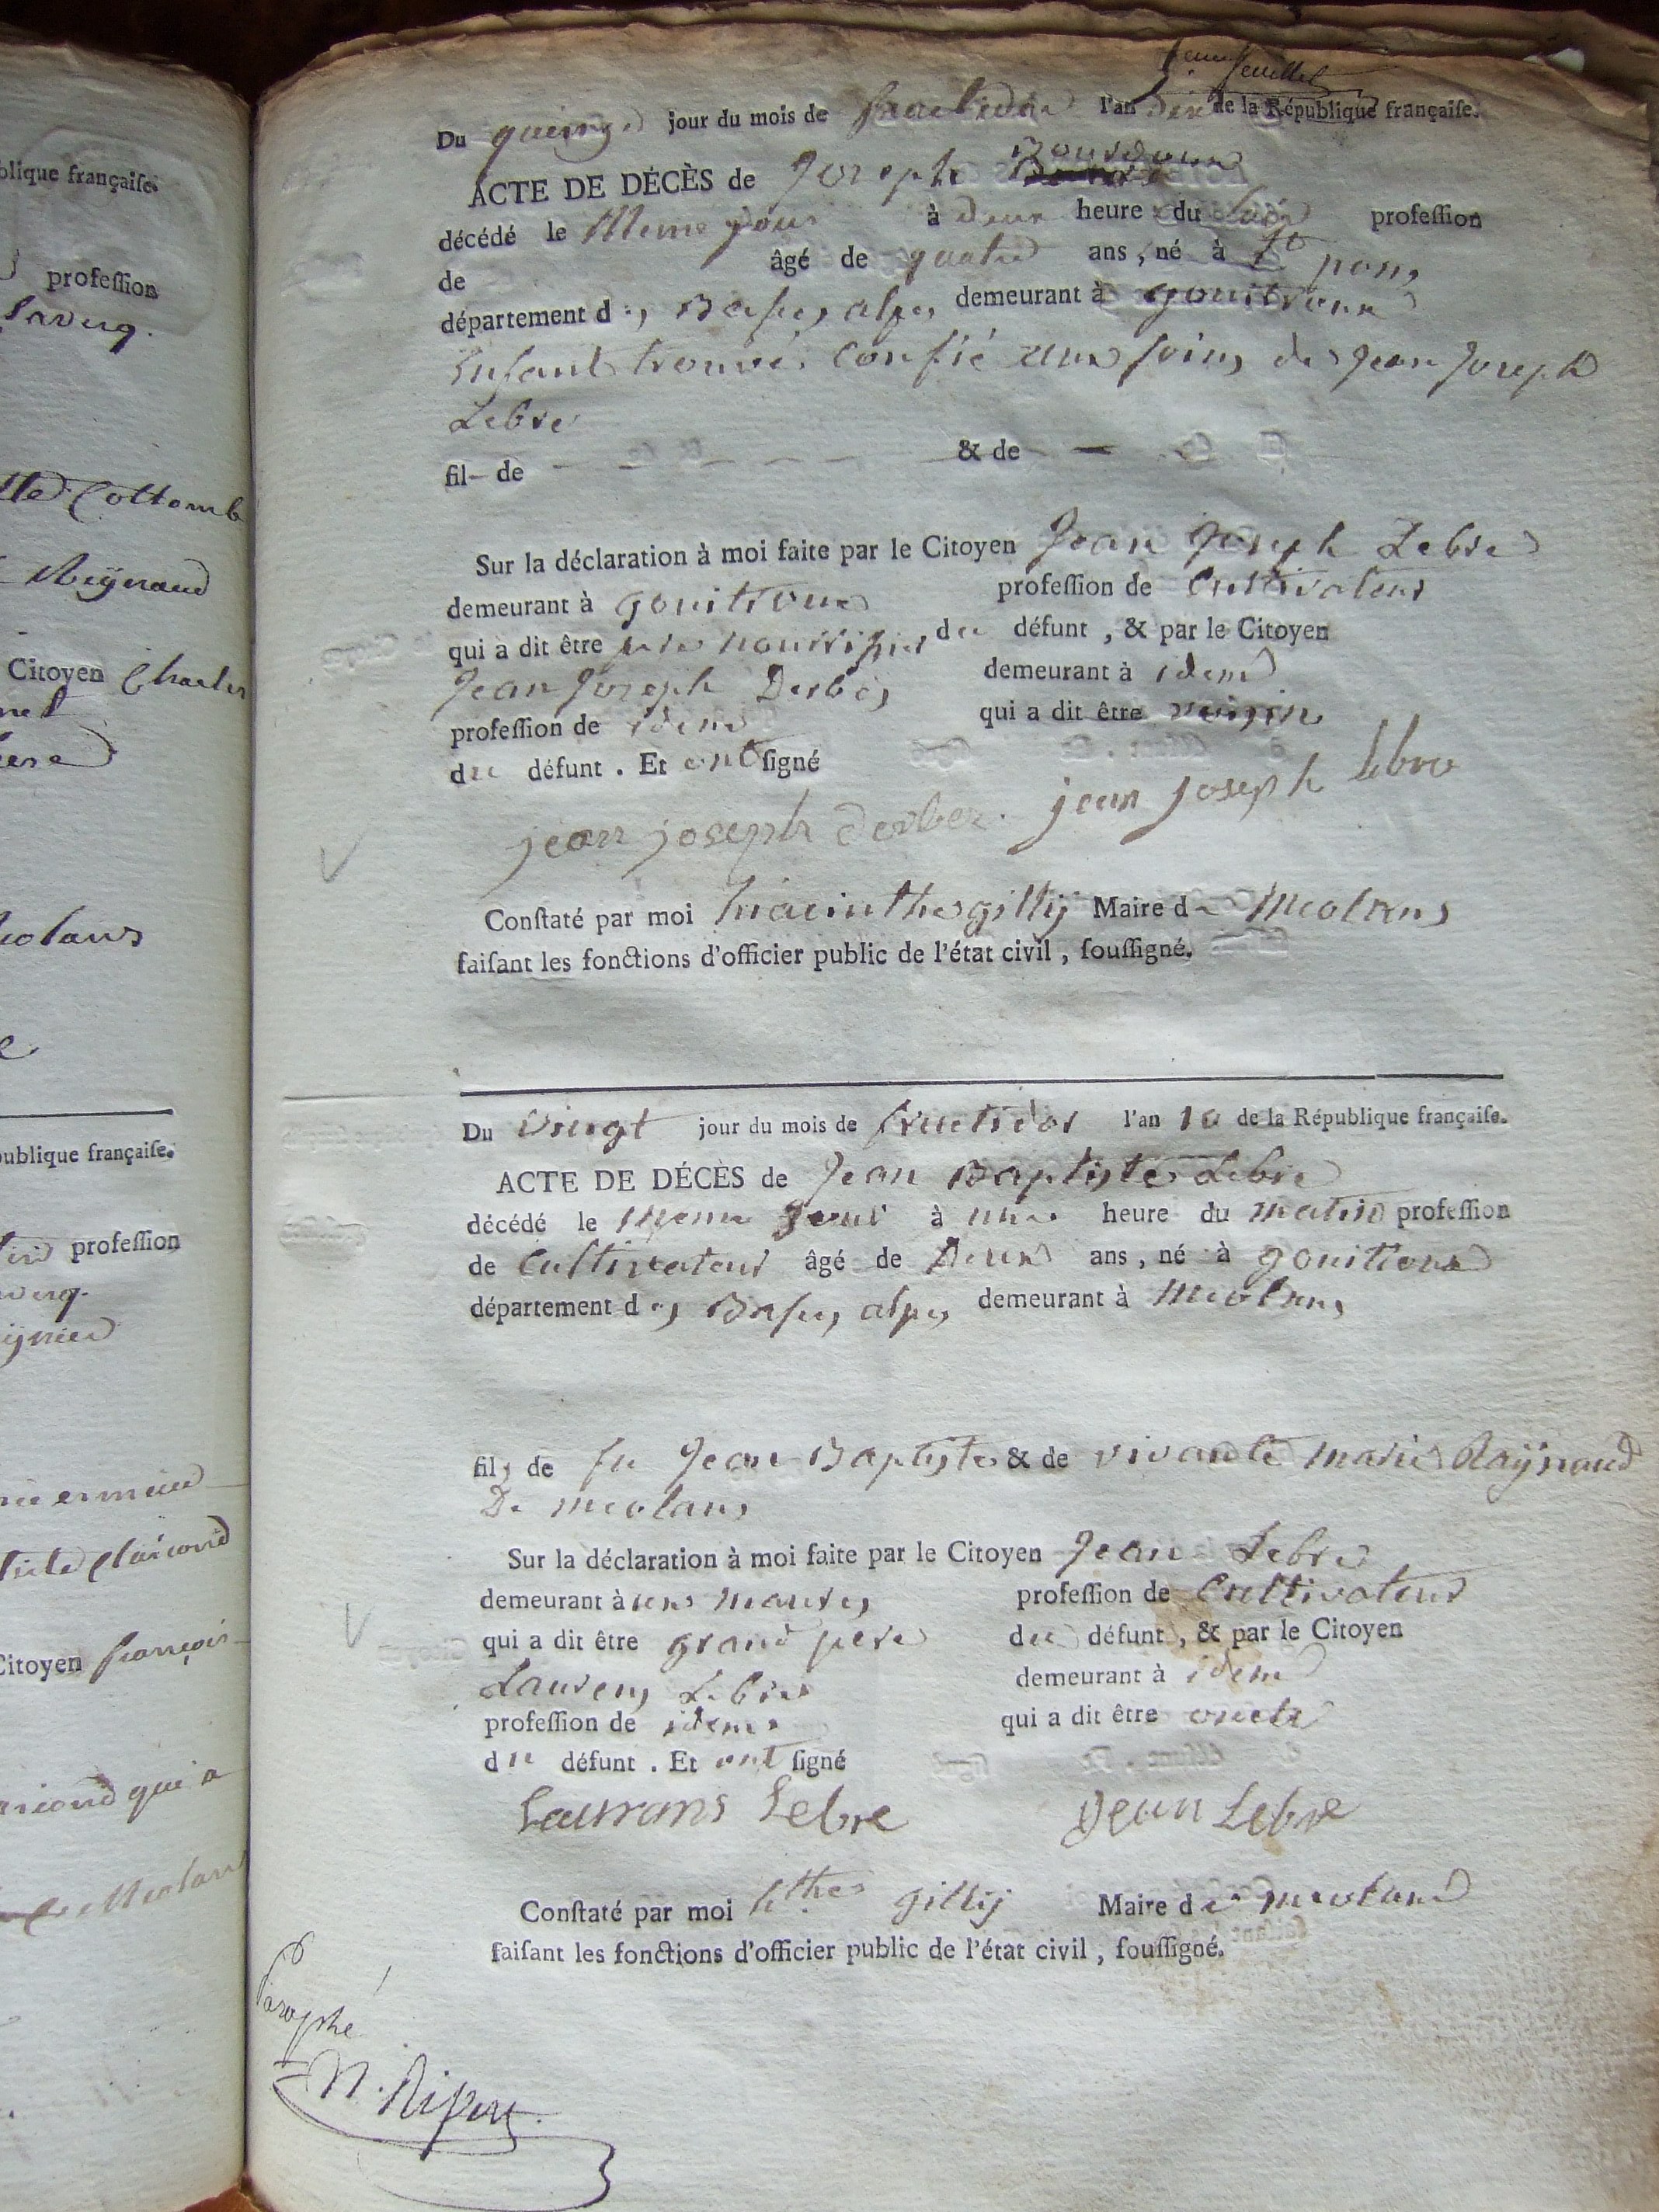 blique françaiſe.
profeſſion
Laverq.
Cottomb
Reÿnaud
Citoyen Charles
colans
publique françaiſe.
profeſſion
verq.
Citoyen françois
qui a
Meolans
feuillet
Du quinze jour du mois de fructidor l'an dix de la République françaiſe.
Bourdoun
ACTE DE DÉCÈS de Joseph
décédé le Meme jour à deux heure du profeſſion
de âgé de quatre ans, né à St pons
département des Basses alpes demeurant à gouitroux
Enfant trouvé. Confié aux soins de jean joseph
Lebre
fil- de - - - - - - & de - -
Sur la déclaration à moi faite par le Citoyen Jean Joseph Lebre
demeurant à gouitroux profeſſion de Cultivateur
qui a dit être pere nourrissier du défunt, & par le Citoyen
Jean Joseph Derbes demeurant à idem
profeſſion de idem qui a dit être voisin
du défunt. Et ont ſigné
jean joseph derbez. jean joseph lebre
Conſtaté par moi hiacinthe gilly Maire de Meolans
faiſant les fonctions d'officier public de l'état civil, ſouſſigné.
Du vingt jour du mois de fructidor l'an 10 de la République françaiſe.
ACTE DE DÉCÈS de Jean Baptiste Lebre
décédé le meme jour à une heure du matin profeſſion
de Cultivateur âgé de Deux ans, né à gouitroux
département des Basses alpes demeurant à Meolans
fils de fu Jean Baptiste & de vivante marie Raÿnaud
De meolans
Sur la déclaration à moi faite par le Citoyen Jean Lebre
demeurant à profeſſion de Cultivateur
qui a dit être grand pere du défunt, & par le Citoyen
Laurens Lebre demeurant à idem
profeſſion de idem qui a dit être oncle
du défunt. Et ont ſigné
Laurans Lebre Jean Lebre
Conſtaté par moi hthe gilly Maire de meolans
faiſant les fonctions d'officier public de l'état civil, ſouſſigné.
Paraphé
N. Ripert